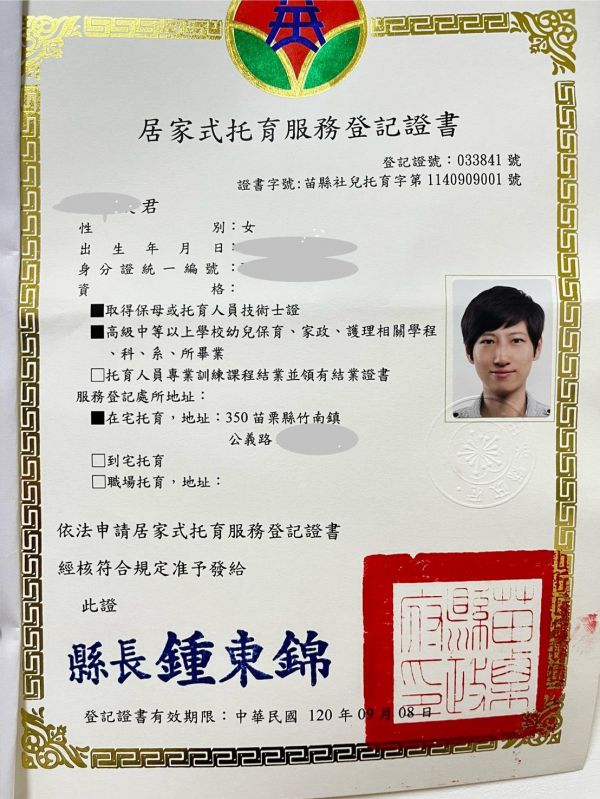 居家式托育服務登記證書
登記證號：033841 號
證書字號:苗縣社兒托育字第 1140909001 號
君
性別：女
出生年月日：
身分證統一編號：
資格：
■取得保母或托育人員技術士證
■高級中等以上學校幼兒保育、家政、護理相關學程
、科、系、所畢業
□托育人員專業訓練課程結業並領有結業證書
服務登記處所地址：
■在宅托育，地址：350 苗栗縣竹南鎮
公義路
□到宅托育
□職場托育，地址：
依法申請居家式托育服務登記證書
經核符合規定准予發給
此證
苗栗縣政府印
縣長鍾東錦
登記證書有效期限：中華民國 120 年 09 月 08 日